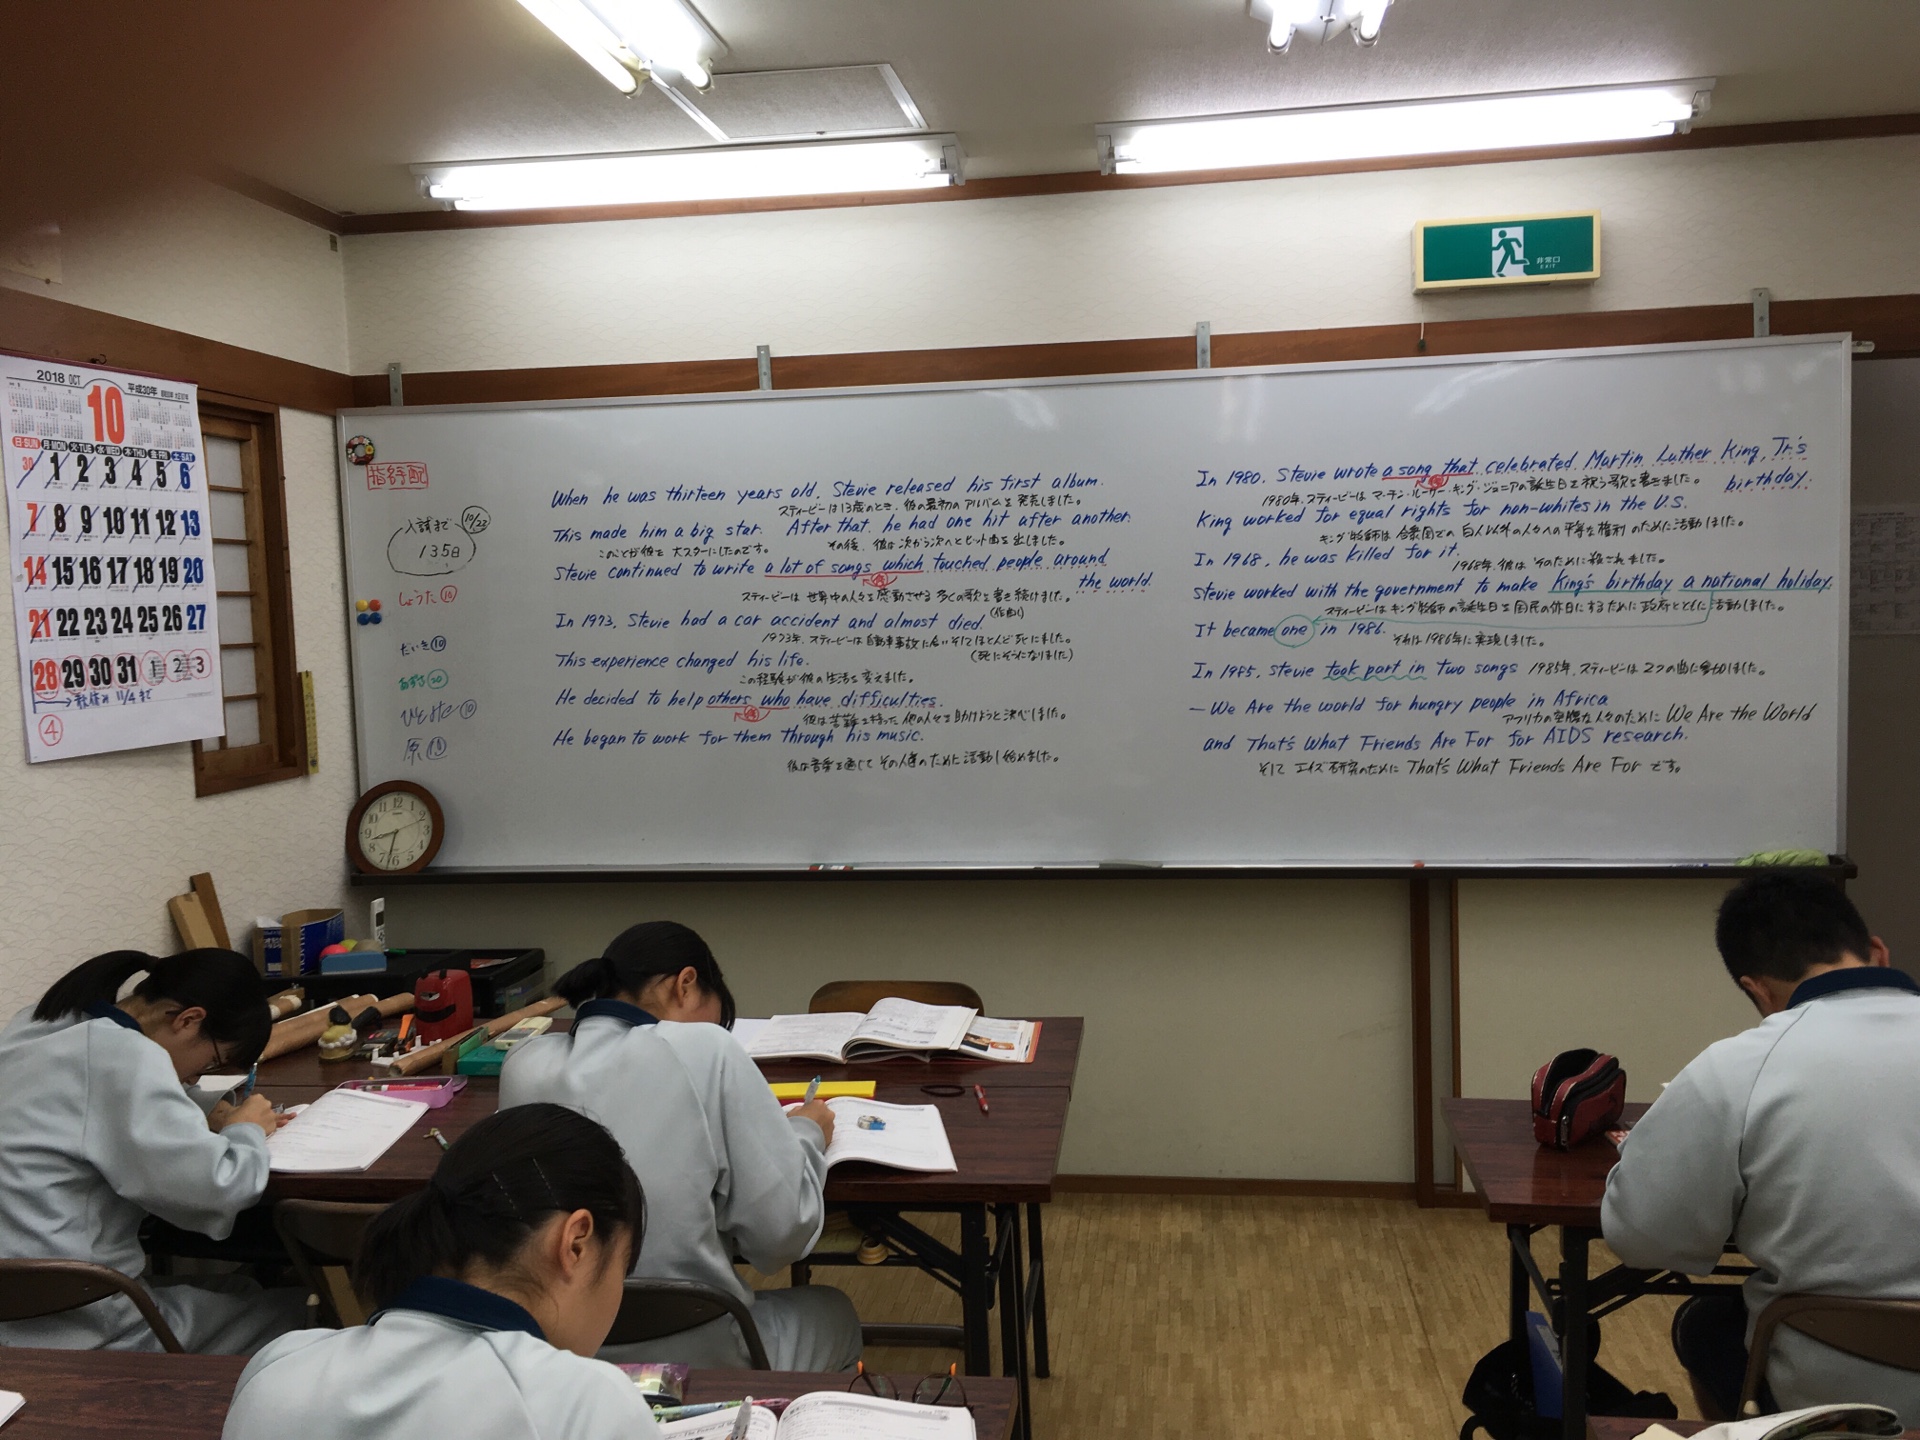 2018 OCT
10
平成30年
日 SUN 月 MON 火 TUE 水 WED 木 THU 金 FRI 土 SAT
30 1 2 3 4 5 6
7 8 9 10 11 12 13
14 15 16 17 18 19 20
21 22 23 24 25 26 27
28 29 30 31 1 2 3
11/4まで
④
非常口
EXIT
指名手配
入試まで 10/22
135日
しょうた ⑩
だいき ⑩
原
12
11 1
10 2
9 3
8 4
7 5
6
When he was thirteen years old, Stevie released his first album.
スティービーは13歳のとき、彼の最初のアルバムを発売しました。
This made him a big star. After that, he had one hit after another.
このことが彼を大スターにしたのです。 その後、彼は次から次へとヒット曲を出しました。
Stevie continued to write a lot of songs which touched people around
the world.
スティービーは世界中の人々を感動させる多くの歌を書き続けました。
(作曲し)
In 1973, Stevie had a car accident and almost died.
1973年、スティービーは自動車事故に会いそしてほとんど死にました。
(死にそうになりました)
This experience changed his life.
この経験が彼の生活を変えました。
He decided to help others who have difficulties.
彼は苦難を持った他の人々を助けようと決心しました。
He began to work for them through his music.
彼は音楽を通じてその人達のために活動し始めました。
In 1980, Stevie wrote a song that celebrated Martin Luther King, Jr's
birthday.
1980年、スティービーはマーチン・ルーサー・キング・ジュニアの誕生日を祝う歌を書きました。
King worked for equal rights for non-whites in the U.S.
キング牧師は合衆国での白人以外の人々への平等な権利のために活動しました。
In 1968, he was killed for it.
1968年、彼はそのために殺されました。
Stevie worked with the government to make King's birthday a national holiday.
スティービーはキング牧師の誕生日を国民の休日にするために政府とともに活動しました。
It became one in 1986.
それは1986年に実現しました。
In 1985, Stevie took part in two songs 1985年、スティービーは2つの曲に参加しました。
— We Are the world for hungry people in Africa
アフリカの空腹な人々のために We Are the World
and That's What Friends Are For for AIDS research.
そして エイズ研究のために That's What Friends Are For です。